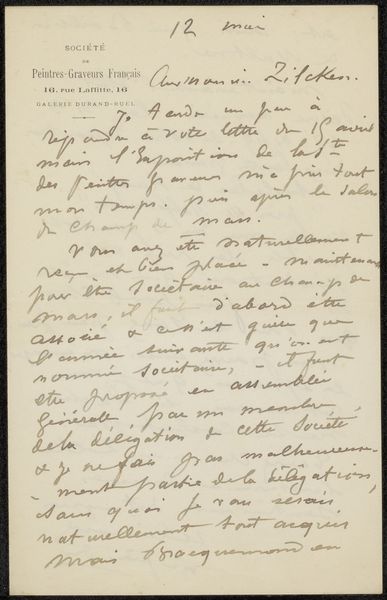 12 mai
SOCIÉTÉ
DE
Peintres-Graveurs Français
16, rue Laffitte, 16
GALERIE DURAND-RUEL
Zilcken.
Je un peu à
répondre à votre lettre du 15 avril
mais l'Exposition de la Sté
des Peintres graveurs m'a pris tout
mon temps. puis après le Salon
du Champ de mars.
Vous avez été naturellement
reçu et bien placé - maintenant
pour être sociétaire au Champ de
mars, il faut d'abord être
associé & ce n'est guère que
l'année suivante qu'on est
nommé sociétaire, - il faut
être proposé en assemblée
générale par un membre
de la délégation de cette Société
& je ne fais pas malheureuse-
ment partie de la délégation,
sans quoi je vous serais
naturellement tout acquis
mais Bracquemond en